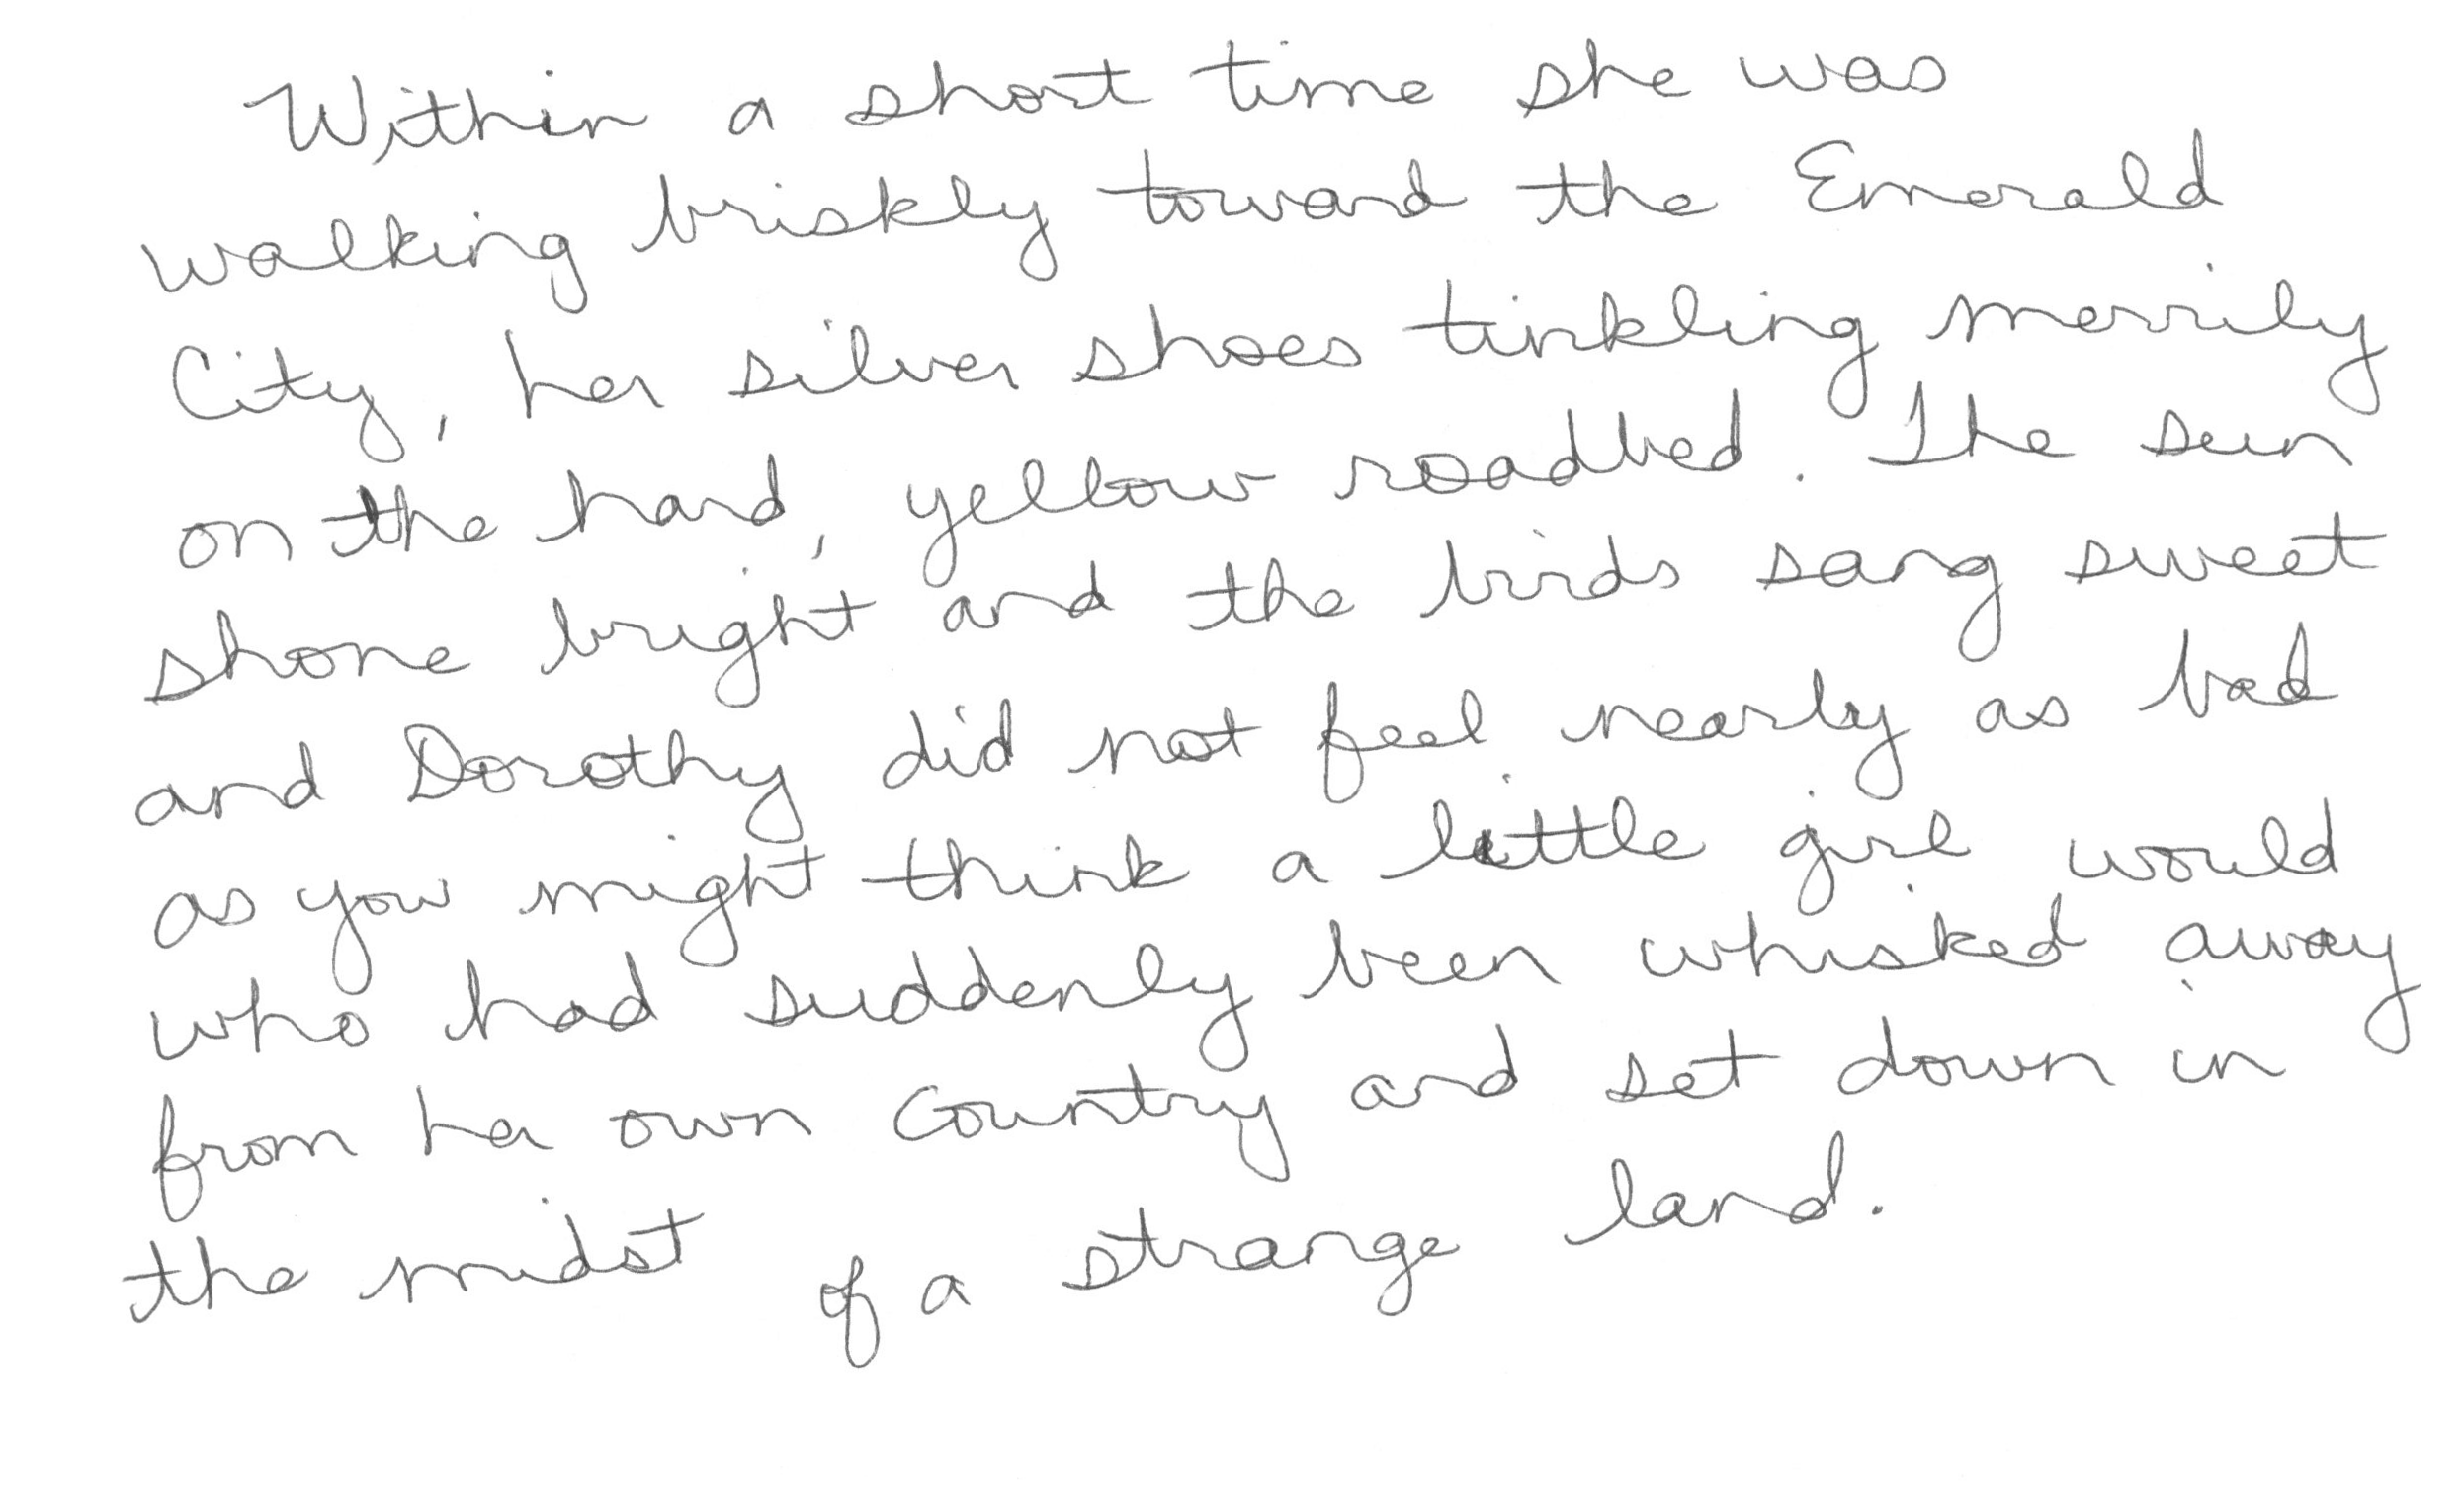 Within a short time she was
walking briskly toward the Emerald
City, her silver shoes tinkling merrily
on the hard, yellow roadbed. The sun
shone bright and the birds sang sweet
and Dorothy did not feel nearly as bad
as you might think a little girl would
who had suddenly been whisked away
from her own country and set down in
the midst of a strange land.